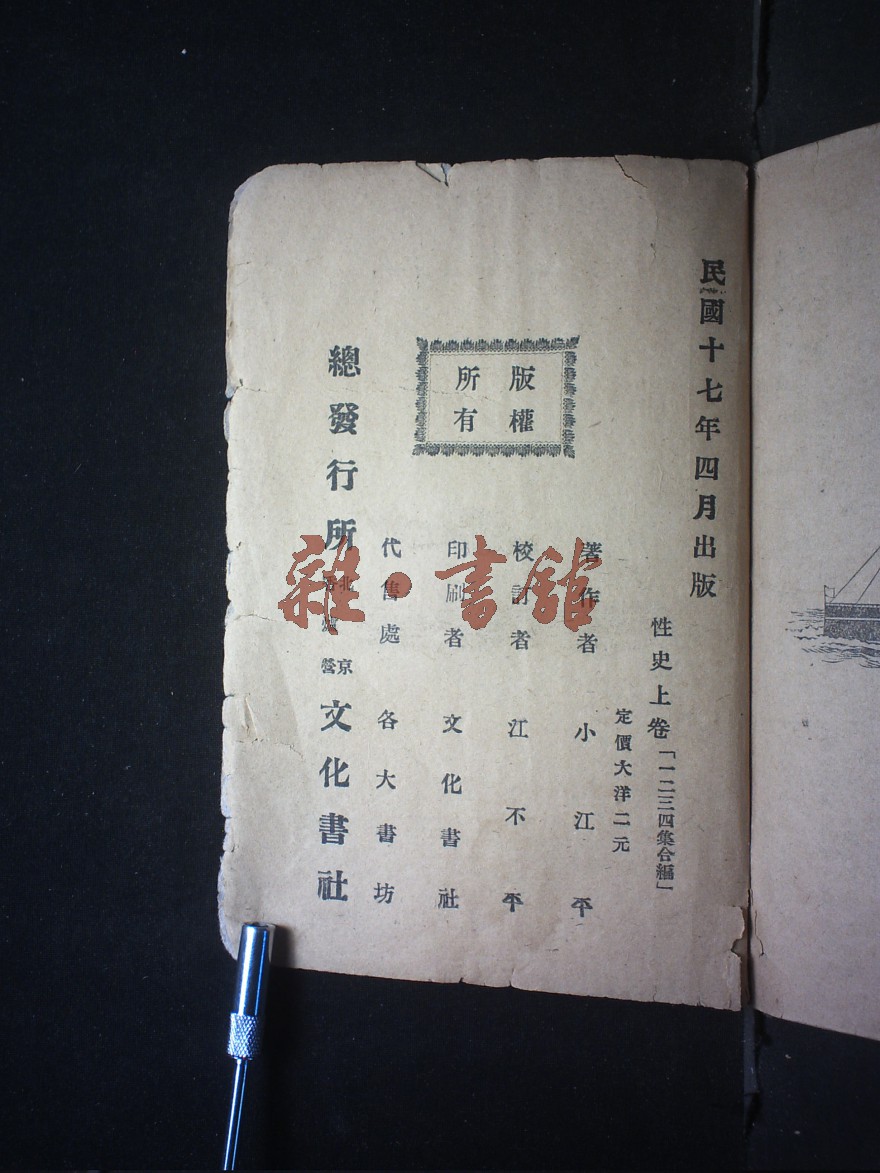 民國十七年四月出版
性史上卷「一二三四集合編」
定價大洋二元
著作者 小江平
校訂者 江不平
印刷者 文化書社
代售處 各大書坊
版權
所有
總發行所 北京 文化書社
雜·書館